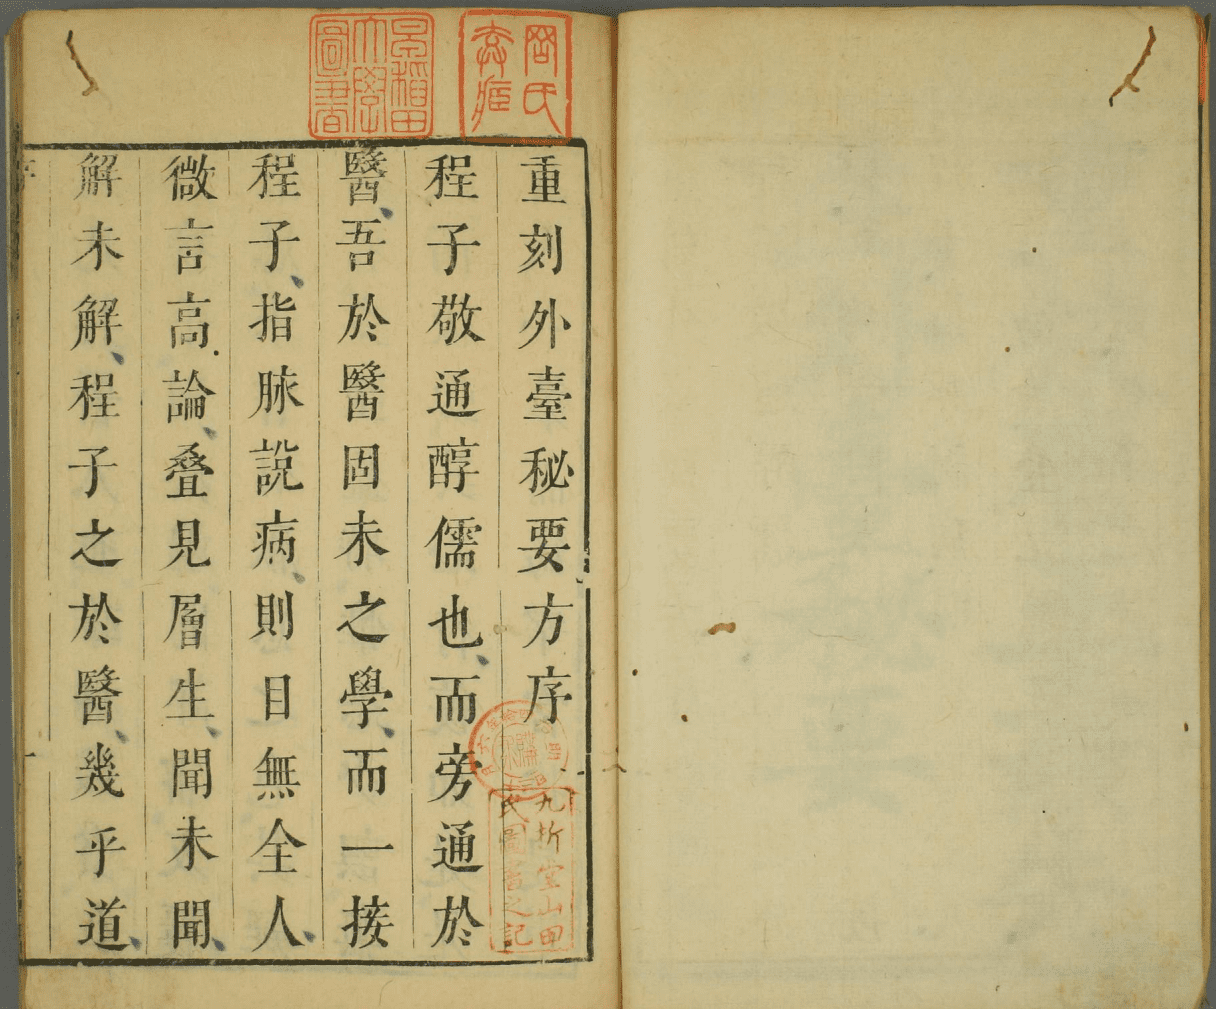 重刻外臺秘要方序
程子敬通醇儒也、而旁通於
醫、吾於醫固未之學、而一接
程子、指脉說病、則目無全人、
微言高論、叠見層生、聞未聞、
解未解、程子之於醫、幾乎道、
早稻田
大學
圖書
氏
九折堂山田
氏圖書之記